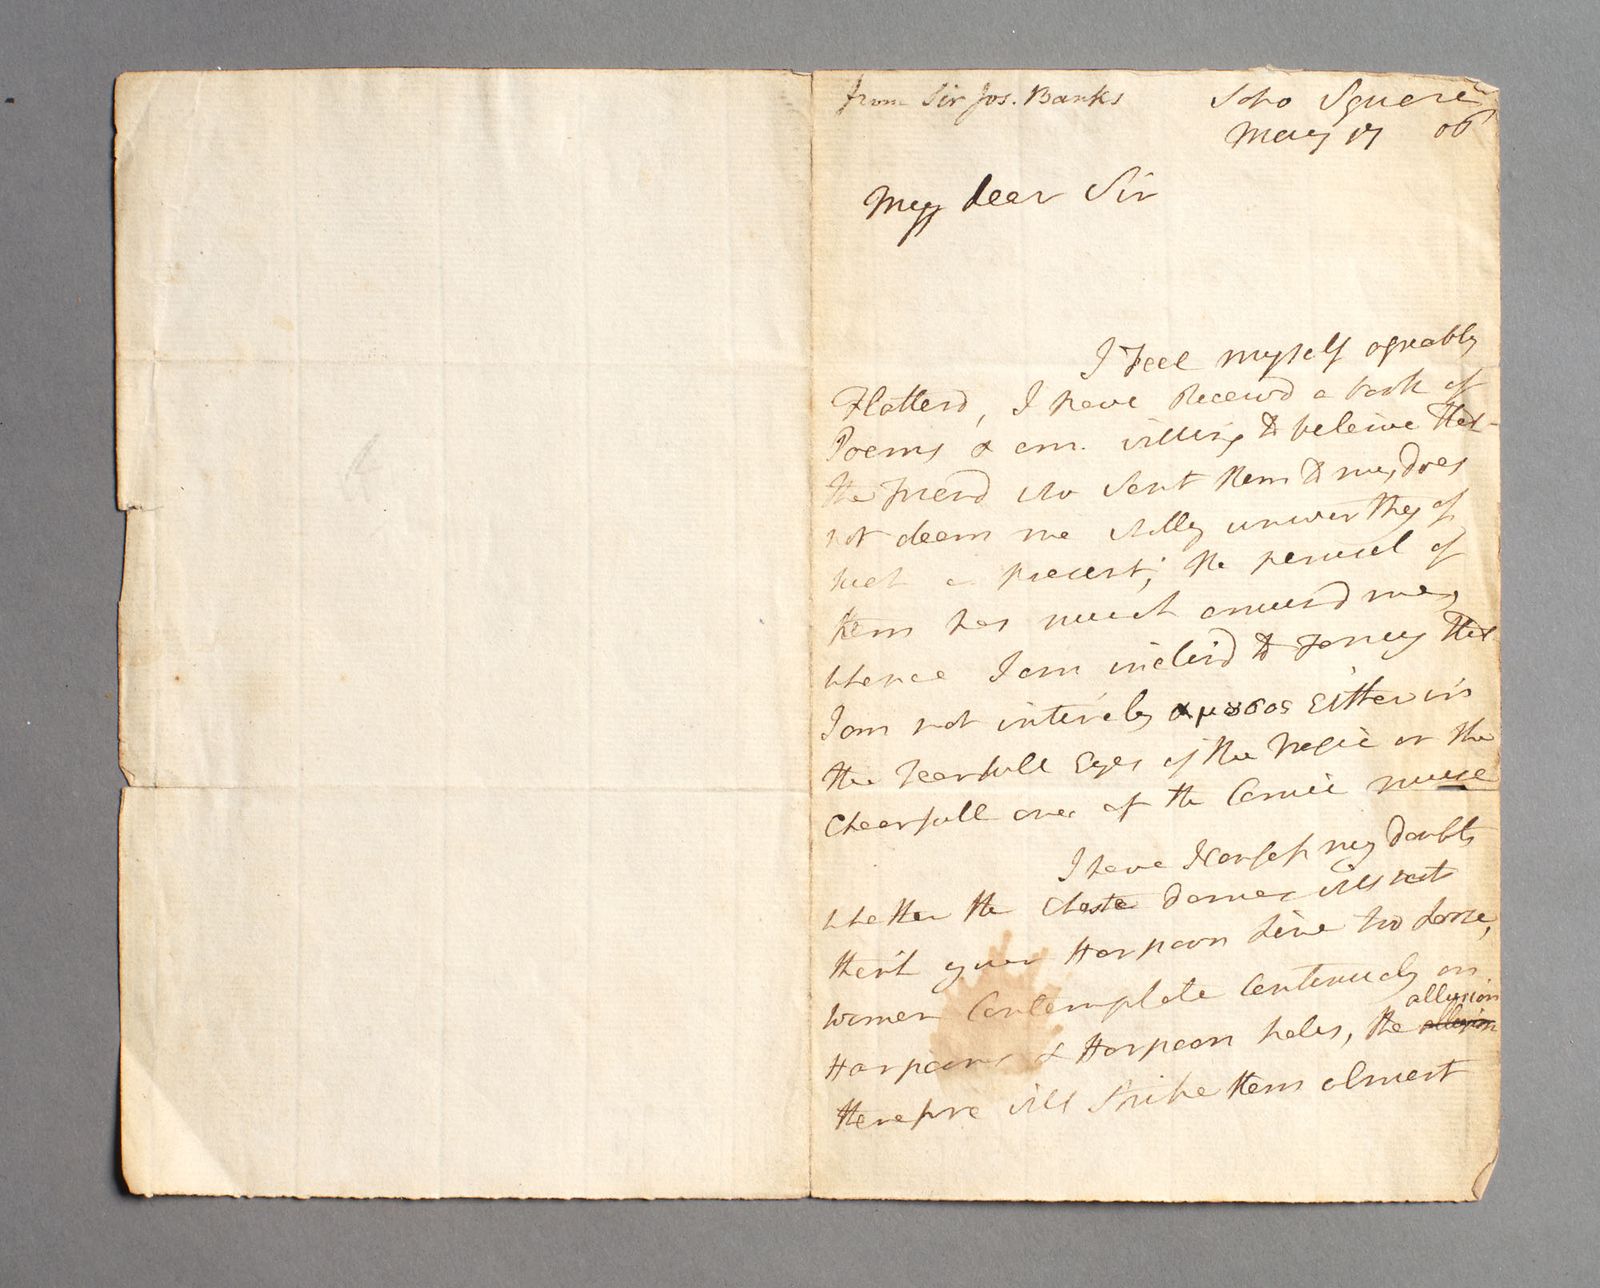 from Sir Jos. Banks
Soho Square
May 17 06
My dear Sir
I Feel myself agreably
Flatterd, I have Receivd a book of
Poems & am willing to beleive that
the Friend who Sent them to me, does
not deem me wholly unworthy of
such a present; the perusal of
them has much amusd me,
whence I am inclind to Fancy that
I am not intirely αμουσος Either in
the tearfull Eyes of the tragic or the
chearfull ones of the Comic muse
I have Nonsense my doubts
whether the chaste dames will not
think your Harpoon Line too Loose,
women Contemplate Continualy on
Harpoons & Harpoon holes, the allusion
therefore will Strike them almost